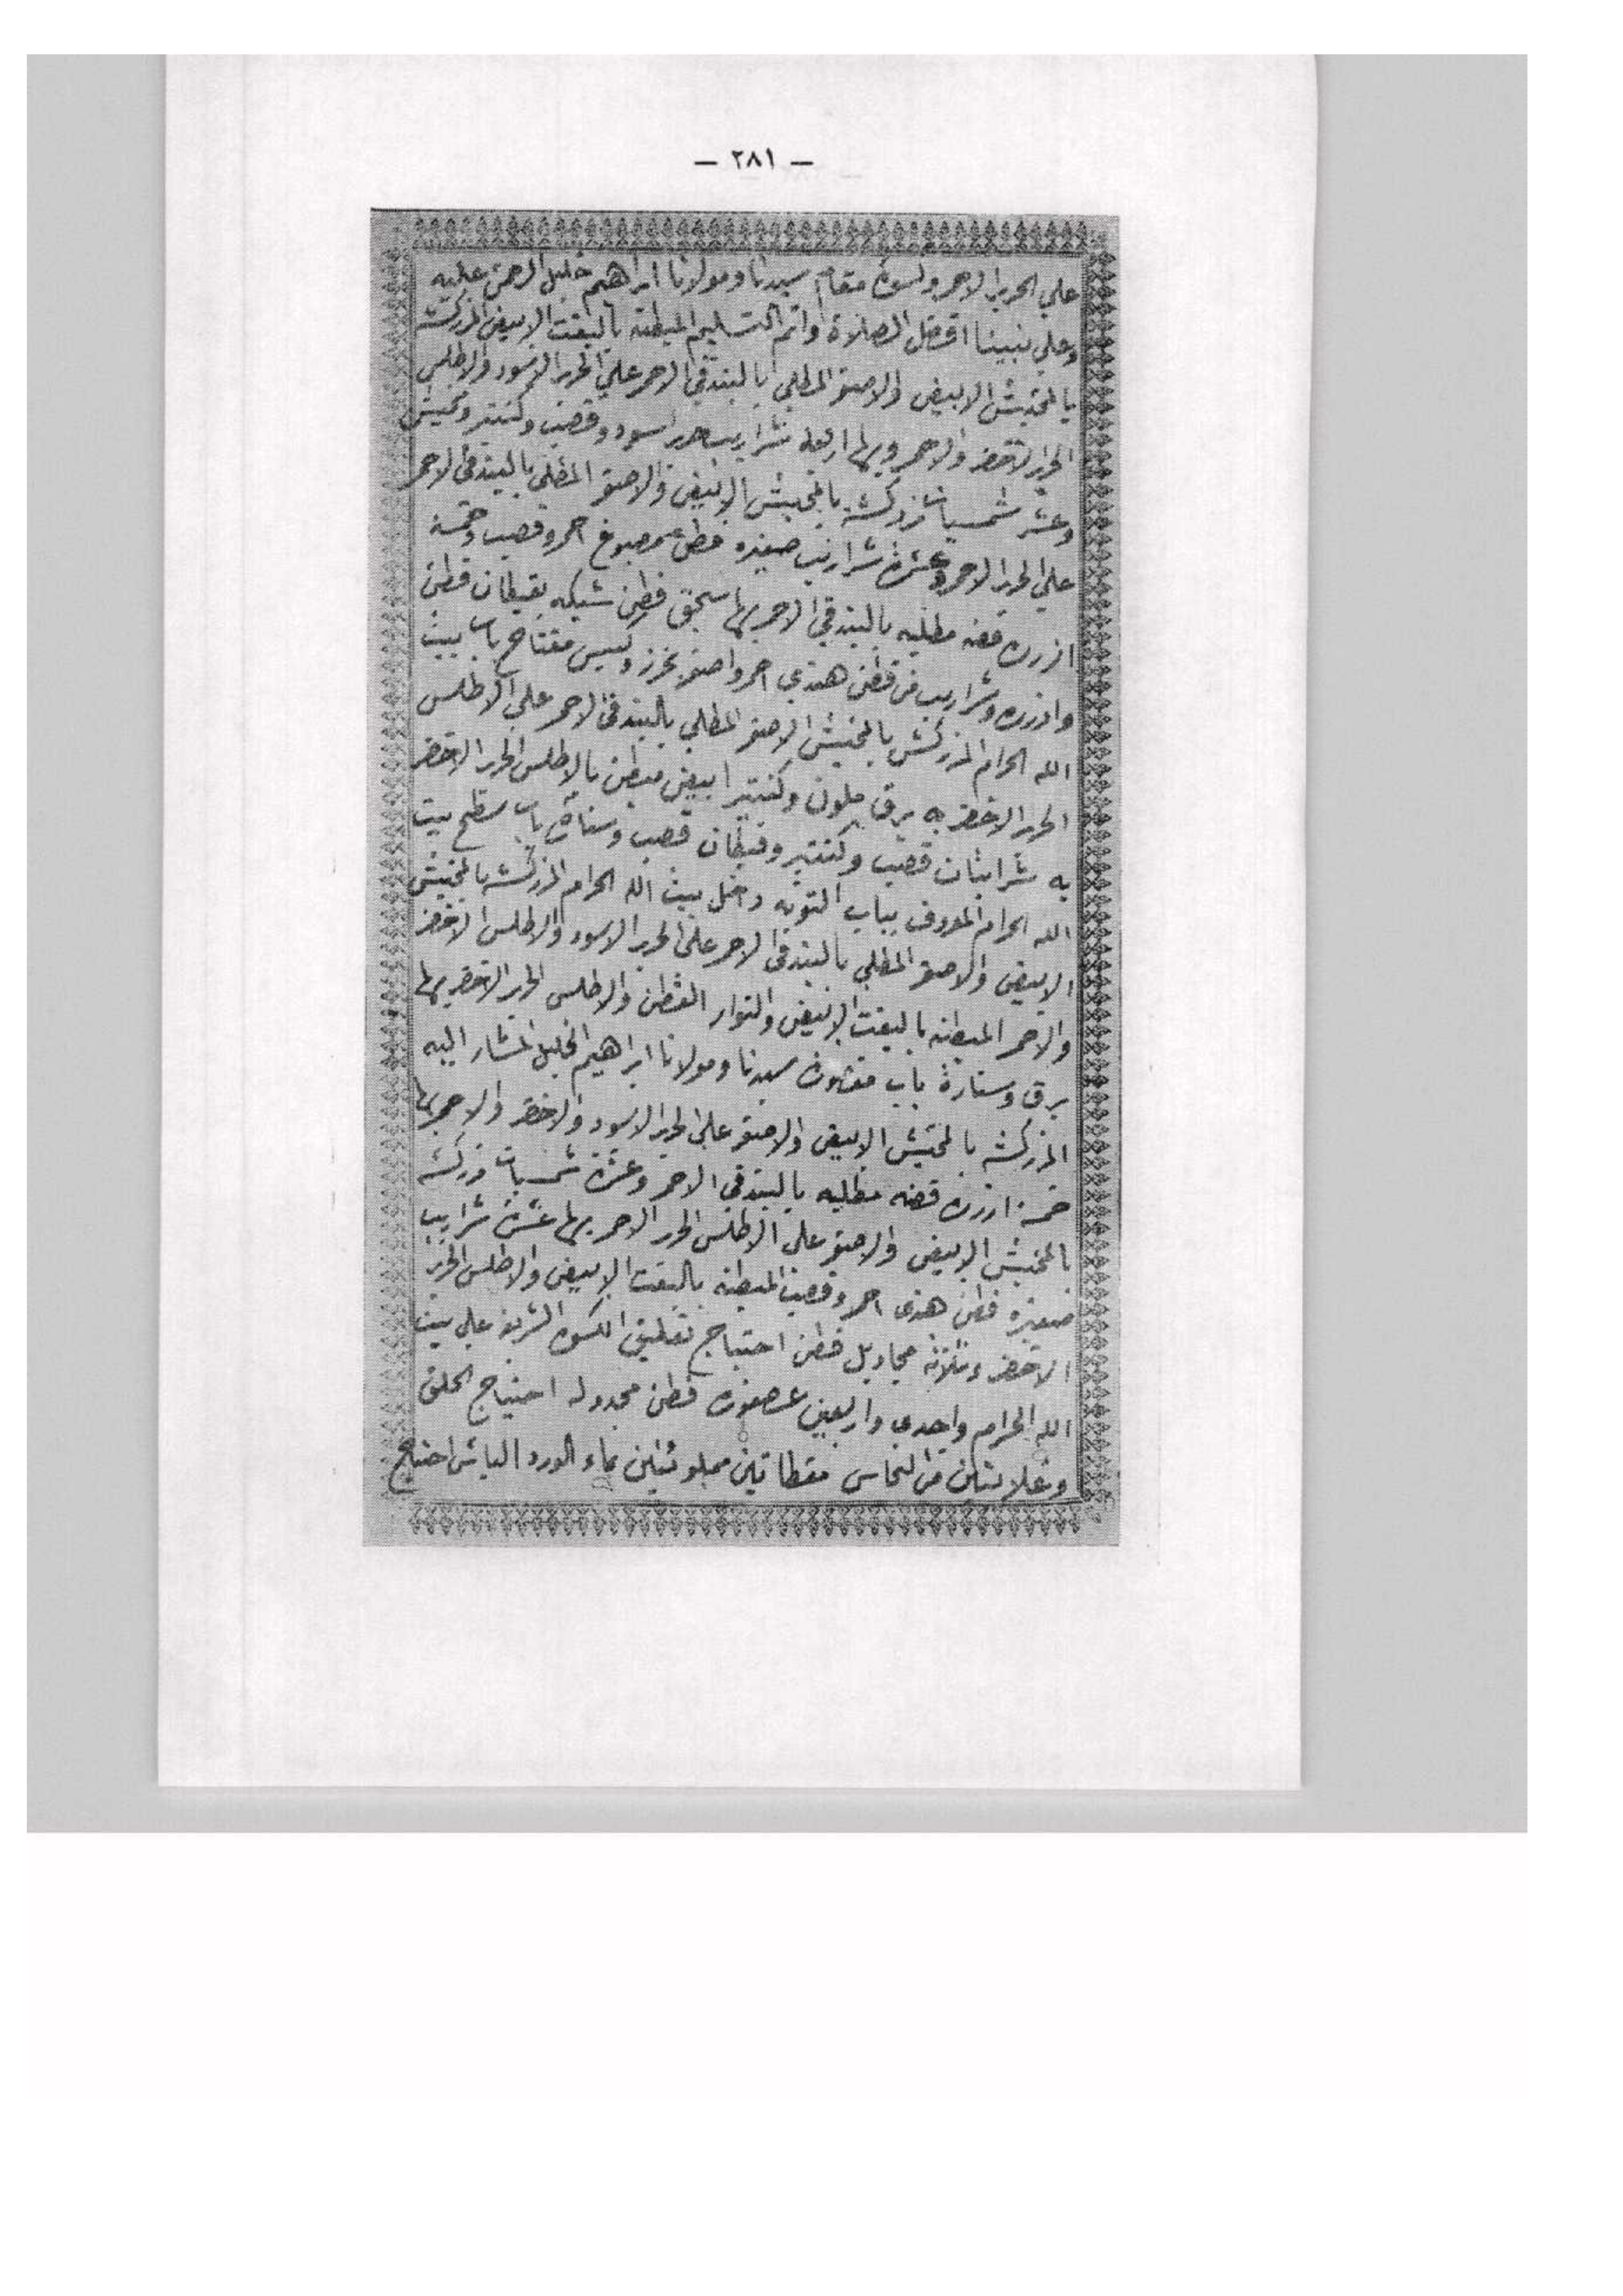 — ٢٨١ —
علي الحرير الاحمر وكسوة مقام سيدنا ومولانا ابراهيم خليل الرحمن عليه
وعلي نبينا افضل الصلاة واتم التسليم المبطنه بالبفت الابيض المزركشه
بالمخيش الابيض والاصفر المطلي بالبندقي الاحمر علي الحرير الاسود والاطلس
الحرير الاخضر والاحمر وبها اربعة شراريب حرير اسود وقصب وكنتير ومخيش
وعشر شمسيات مزركشه بالمخيش الابيض والاصفر المطلي بالبندقي الاحمر
علي الحرير الاحمر وعشرة شراريب صغيره قطن مصبوغ احمر وقصب وخمسة
ازرره فضه مطليه بالبندقي الاحمر بها سجق قطن شبيكه بقيطان قطن
وازرره وشراريب من قطن هندي احمر واصفر بخرز وكيس مفتاح باب بيت
الله الحرام المزركش بالمخيش الاصفر المطلي بالبندقي الاحمر علي الاطلس
الحرير الاخضر به برق ملون وكنتير ابيض مبطن بالاطلس الحرير الاخضر
به شرابتان قصب وكنتير وقيطان قصب وستارة باب سطح بيت
الله الحرام المعروف بباب التوبه داخل بيت الله الحرام المزركشه بالمخيش
الابيض والاصفر المطلي بالبندقي الاحمر علي الحرير الاسود والاطلس الاخضر
والاحمر المبطنه بالبفت الابيض والنوار القطن والاطلس الحرير الاخضر بها
برق وستارة باب مقصورة سيدنا ومولانا ابراهيم الخليل المشار اليه
المزركشه بالمخيش الابيض والاصفر علي الحرير الاسود والاخضر والاحمر بها
خمسة ازرره فضه مطليه بالبندقي الاحمر وعشرة شمسيات مزركشه
بالمخيش الابيض والاصفر علي الاطلس الحرير الاحمر بها عشرة شراريب
صغيره قطن هندي احمر وقصب المبطنه بالبفت الابيض والاطلس الحرير
الاخضر وثلاثة مجاديل قطن احتياج تعليق الكسوه الشريفه علي بيت
الله الحرام واحدي واربعين عصفوره قطن مجدوله احتياج الحلق
وغلايتين من النحاس مغطاتين مملوئتين بماء الورد الباش احتياج